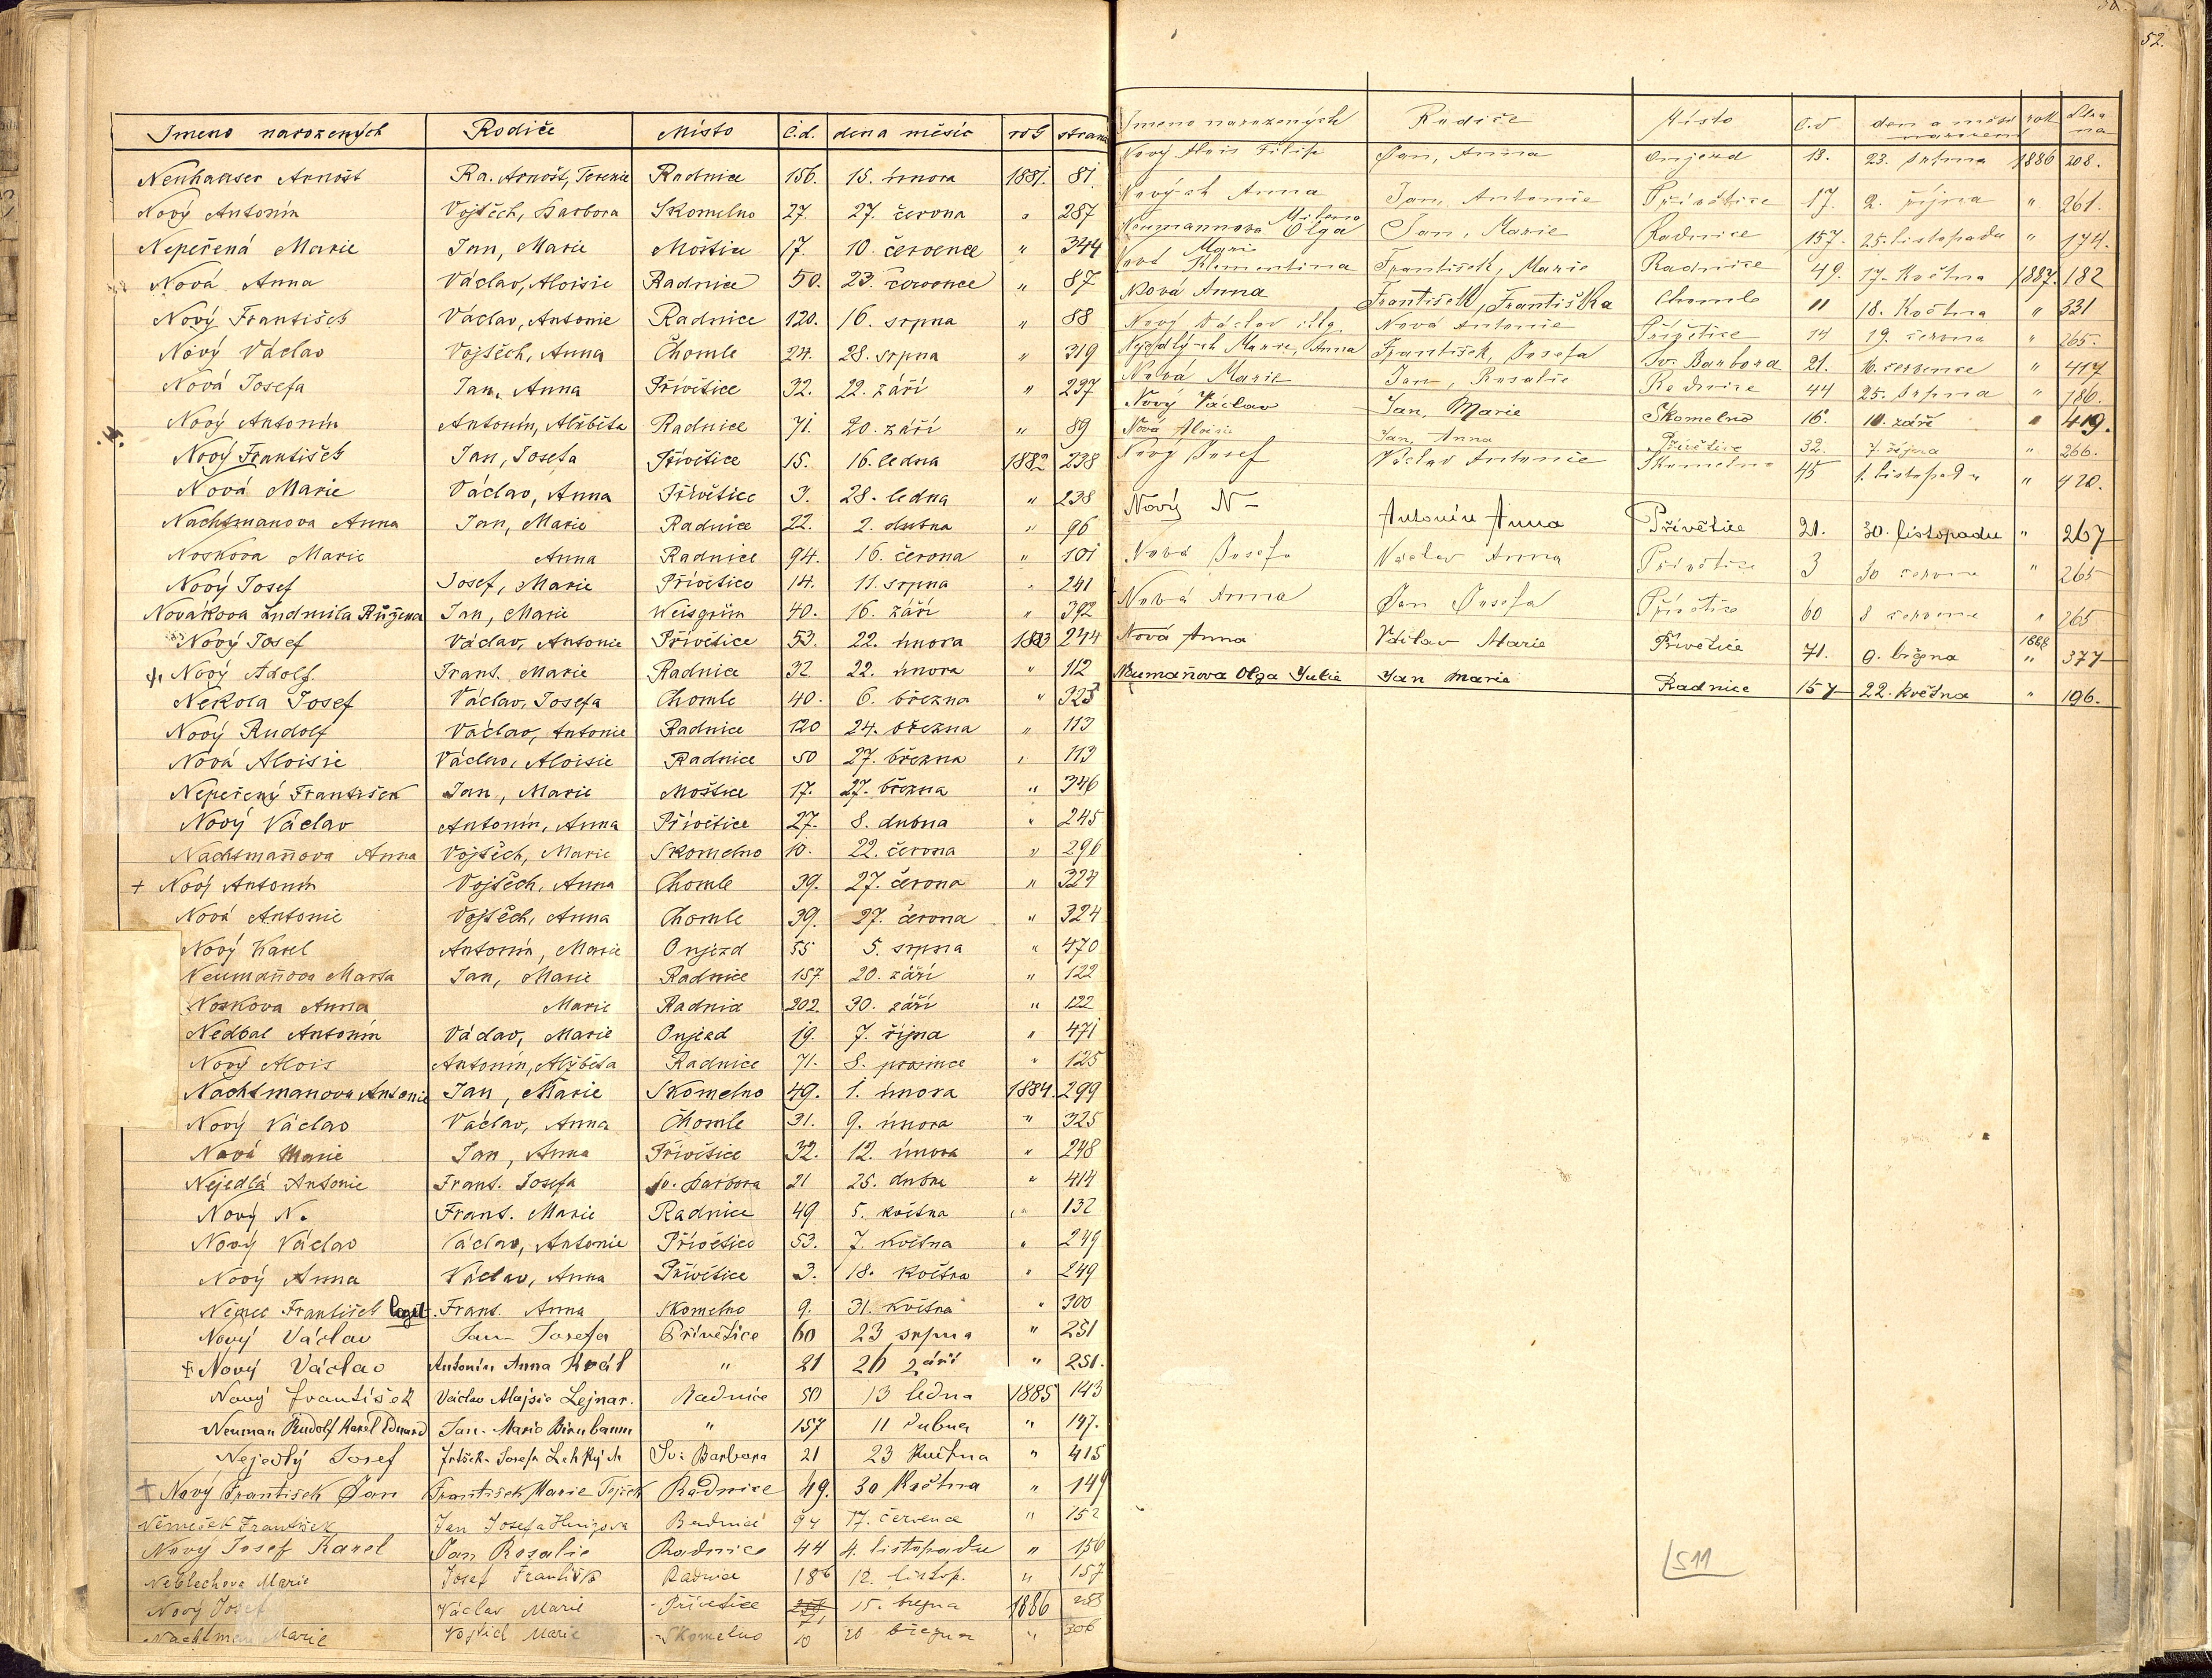 Jmeno narozených Rodiče Místo č.d. den a měsíc rok strana
Neuhauser Arnošt Ra. Arnošt, Terezie Radnice 156. 15. února 1881. 81
Nový Antonín Vojtěch, Barbora Skomelno 27. 27. června " 287
Nepeřená Marie Jan, Marie Moštice 17. 10. července " 344
Nová Anna Václav, Aloisie Radnice 50. 23. července " 87
Nový František Václav, Antonie Radnice 120. 16. srpna " 88
Nový Václav Vojtěch, Anna Chomle 24. 28. srpna " 319
Nová Josefa Jan, Anna Přívětice 32. 22. září " 237
Nový Antonín Antonín, Alžběta Radnice 71. 20. září " 89
Nový František Jan, Josefa Přívětice 15. 16. ledna 1882 238
Nová Marie Václav, Anna Přívětice 3. 28. ledna " 238
Nachtmanova Anna Jan, Marie Radnice 22. 2. dubna " 96
Noskova Marie Anna Radnice 94. 16. června " 101
Nový Josef Josef, Marie Přívětice 14. 11. srpna " 241
Novákova Ludmila Růžena Jan, Marie Weisgrün 40. 16. září " 392
Nový Josef Václav, Antonie Přívětice 53. 22. února 1883 244
Nový Adolf Frant. Marie Radnice 32 22. února " 112
Nekola Josef Václav, Josefa Chomle 40. 6. března " 323
Nový Rudolf Václav, Antonie Radnice 120 24. března " 113
Nová Aloisie Václav, Aloisie Radnice 50 27. března " 113
Nepeřený František Jan, Marie Moštice 17. 27. března " 346
Nový Václav Antonín, Anna Přívětice 27. 8. dubna " 245
Nachtmaňova Anna Vojtěch, Marie Skomelno 10. 22. června " 296
+ Nový Antonín Vojtěch, Anna Chomle 39. 27. června " 324
Nová Antonie Vojtěch, Anna Chomle 39. 27. června " 324
Nový Karel Antonín, Marie Oujezd 55 5. srpna " 470
Neumaňova Marta Jan, Marie Radnice 157 20. září " 122
Noskova Anna Marie Radnice 202. 30. září " 122
Nedbal Antonín Václav, Marie Oujezd 19. 7. října " 471
Nový Alois Antonín, Alžběta Radnice 71. 8. prosince " 125
Nachtmanova Antonie Jan, Marie Skomelno 49. 1. února 1884. 299
Nový Václav Václav, Anna Chomle 31. 9. února " 325
Nová Marie Jan, Anna Přívětice 32. 12. února " 248
Nejedlá Antonie Frant. Josefa Sv. Barbora 21 25. dubna " 414
Nový N. Frant. Marie Radnice 49 5. května " 132
Nový Václav Václav, Antonie Přívětice 53. 7. května " 249
Nový Anna Václav, Anna Přívětice 3. 18. května " 249
Němec František legit. Frant. Anna Skomelno 9. 31. května " 300
Nový Václav Jan Josefa Přívětice 60 23 srpna " 251
+ Nový Václav Antonín Anna Král " 21 26 září " 251.
Nový František Václav Alojsie Lejnar. Radnice 50 13 ledna 1885 143
Neuman Rudolf Karel Eduard Jan. Marie Birnbaum " 157 11 dubna " 147.
Nejedlý Josef Josefa Lehkých Sv. Barbora 21 23 Května " 415
+ Nový František Jan František Marie Radnice 49. 30 Května " 149
Němeček František Jan Josefa Radnice 94 17. července " 152
Nový Josef Karel Jan Rosalie Radnice 44 4. listopadu " 156
Neblechova Marie Josef Františka Radnice 186 12. listop. " 157
Nový Josef Václav Marie Přívětice 71 15. března 1886
Nachtman Marie Vojtěch Marie Skomelno 10 26 března " 306
52.
Jmeno narozených Rodiče Místo č.d. den a měsíc narození rok Strana
Nový Alois Filip Jan, Anna Oujezd 13. 23. srpna 1886 208.
Nových Anna Jan, Antonie Přívětice 17. 2. října " 261.
Neumannova Milena Olga Jan, Marie Radnice 157. 25. listopadu " 174.
Nová Marie Klementina František, Marie Radnice 49. 17. Května 1887. 182
Nová Anna František, Františka Chomle 11 18. Května " 331
Nový Václav illg. Nová Antonie Přívětice 14 19. června " 265.
Nejedlých Marie, Anna František, Josefa Sv. Barbora 21. 16. července " 417
Nová Marie Jan, Rosalie Radnice 44 25. srpna " 186.
Nový Václav Jan, Marie Skomelno 16. 10. září " 419.
Nová Aloisie Jan, Anna Přívětice 32. 7. října " 266.
Nový Josef Václav Antonie Skomelno 45 1. listopadu " 420.
Nový N – Antonín Anna Přívětice 21. 30. listopadu " 267
Nová Josefa Václav Anna Přívětice 3 30 června " 265
Nová Anna Jan Josefa Přívětice 60 8 července " 265
Nová Anna Václav Marie Přívětice 71. 9. března 1888 " 377
Neumaňova Olga Julie Jan Marie Radnice 157 22. května " 196.
511